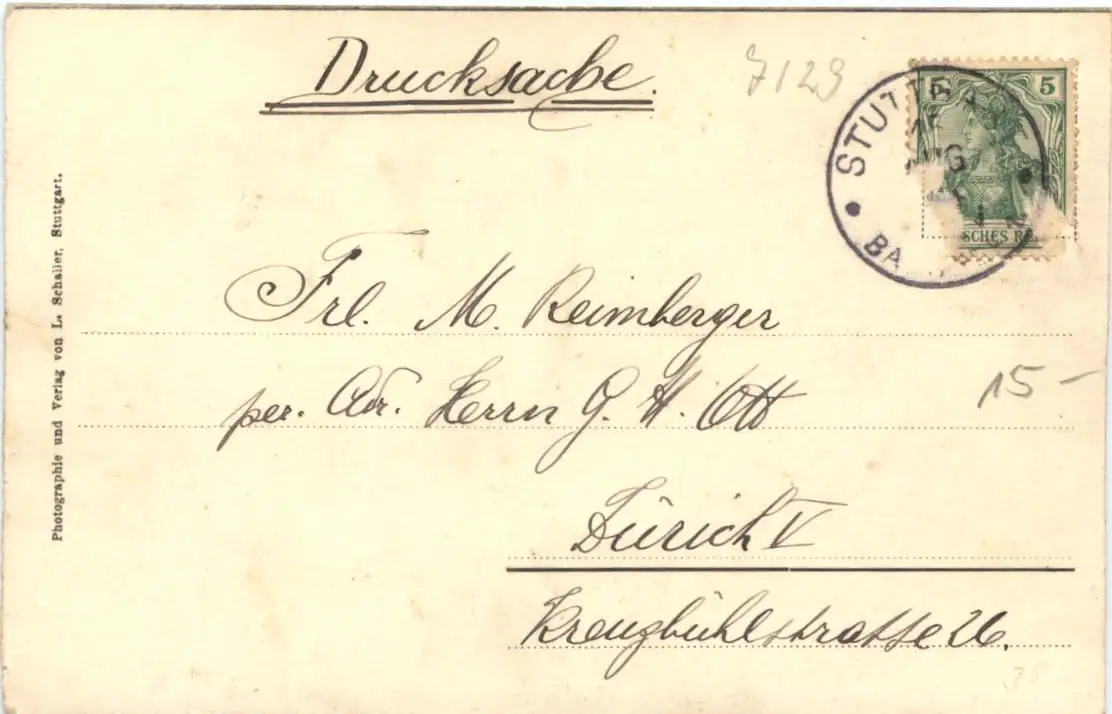 Drucksache.
7129
5
STUTTG
AUG
BA
SCHES R
Photographie und Verlag von L. Schaller, Stuttgart.
Frl. M. Reimberger
per. Adr. Herrn G. H. Ott
15 –
Zürich V
Kreuzbühlstrasse 26.